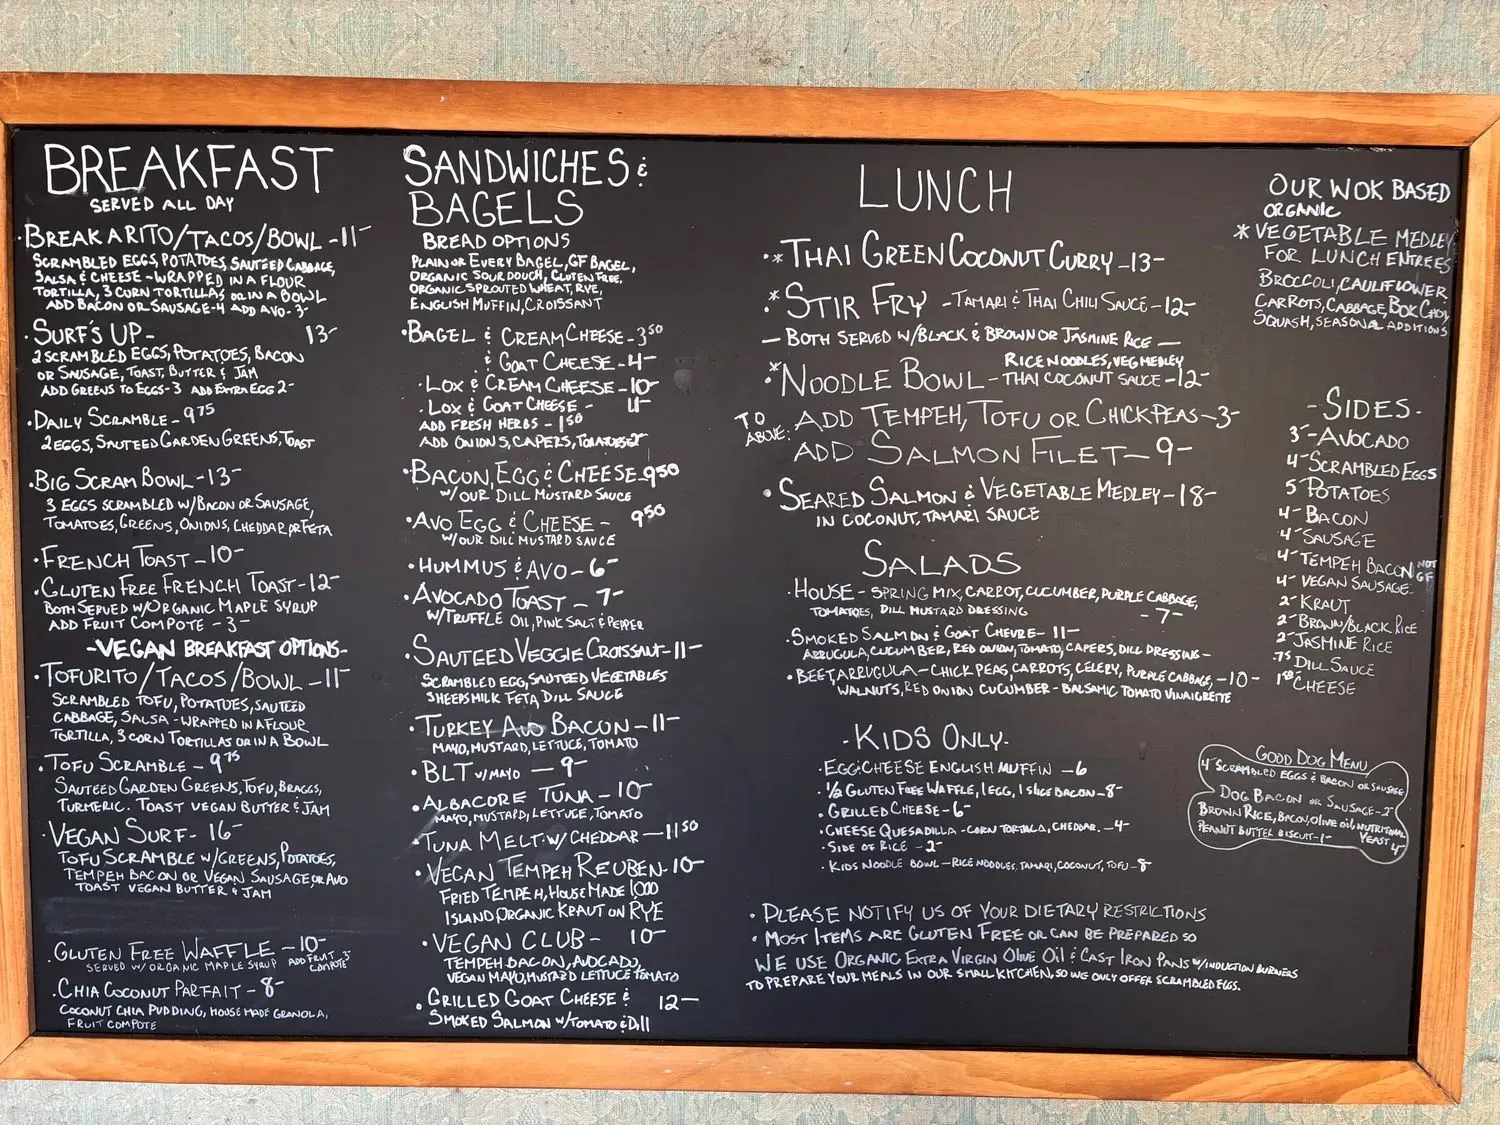 BREAKFAST
SERVED ALL DAY
·BREAKARITO/TACOS/BOWL -11-
SCRAMBLED EGGS, POTATOES, SAUTEED CABBAGE,
SALSA & CHEESE - WRAPPED IN A FLOUR
TORTILLA, 3 CORN TORTILLAS OR IN A BOWL
ADD BACON OR SAUSAGE-4 ADD AVO-3-
·SURF'S UP- 13-
2 SCRAMBLED EGGS, POTATOES, BACON
OR SAUSAGE, TOAST, BUTTER & JAM
ADD GREENS TO EGGS-3 ADD EXTRA EGG 2-
·DAILY SCRAMBLE-9 75
2 EGGS, SAUTEED GARDEN GREENS, TOAST
·BIG SCRAM BOWL-13-
3 EGGS SCRAMBLED W/BACON OR SAUSAGE,
TOMATOES, GREENS, ONIONS, CHEDDAR OR FETA
·FRENCH TOAST-10-
·GLUTEN FREE FRENCH TOAST-12-
BOTH SERVED W/ORGANIC MAPLE SYRUP
ADD FRUIT COMPOTE -3-
-VEGAN BREAKFAST OPTIONS-
·TOFURITO/TACOS/BOWL-11-
SCRAMBLED TOFU, POTATOES, SAUTEED
CABBAGE, SALSA - WRAPPED IN A FLOUR
TORTILLA, 3 CORN TORTILLAS OR IN A BOWL
·TOFU SCRAMBLE-9 75
SAUTEED GARDEN GREENS, TOFU, BRAGGS,
TURMERIC. TOAST VEGAN BUTTER & JAM
·VEGAN SURF- 16-
TOFU SCRAMBLE W/GREENS, POTATOES,
TEMPEH BACON OR VEGAN SAUSAGE OR AVO
TOAST VEGAN BUTTER & JAM
·GLUTEN FREE WAFFLE -10- ADD FRUIT 3-
SERVED W/ORGANIC MAPLE SYRUP COMPOTE
·CHIA COCONUT PARFAIT-8-
COCONUT CHIA PUDDING, HOUSE MADE GRANOLA,
FRUIT COMPOTE
SANDWICHES &
BAGELS
BREAD OPTIONS
PLAIN OR EVERY BAGEL, GF BAGEL,
ORGANIC SOURDOUGH, GLUTEN FREE,
ORGANIC SPROUTED WHEAT, RYE,
ENGLISH MUFFIN, CROISSANT
·BAGEL & CREAM CHEESE-3 50
& GOAT CHEESE-4-
·LOX & CREAM CHEESE-10-
·LOX & GOAT CHEESE - 11-
ADD FRESH HERBS -1 50
ADD ONIONS, CAPERS, TOMATOES 2-
·BACON, EGG & CHEESE-9 50
W/OUR DILL MUSTARD SAUCE
·AVO EGG & CHEESE- 9 50
W/OUR DILL MUSTARD SAUCE
·HUMMUS & AVO-6-
·AVOCADO TOAST-7-
W/TRUFFLE OIL, PINK SALT & PEPPER
·SAUTEED VEGGIE CROISSANT-11-
SCRAMBLED EGG, SAUTEED VEGETABLES
SHEEPSMILK FETA DILL SAUCE
·TURKEY AVO BACON-11-
MAYO, MUSTARD, LETTUCE, TOMATO
·BLT W/MAYO -9-
·ALBACORE TUNA-10-
MAYO, MUSTARD, LETTUCE, TOMATO
·TUNA MELT W/CHEDDAR-11 50
·VEGAN TEMPEH REUBEN-10-
FRIED TEMPEH, HOUSE MADE 1,000
ISLAND, ORGANIC KRAUT ON RYE
·VEGAN CLUB- 10-
TEMPEH BACON, AVOCADO,
VEGAN MAYO, MUSTARD LETTUCE TOMATO
·GRILLED GOAT CHEESE & 12-
SMOKED SALMON W/TOMATO & Dill
LUNCH
·*THAI GREEN COCONUT CURRY-13-
·*STIR FRY -TAMARI & THAI CHILI SAUCE-12-
-BOTH SERVED W/BLACK & BROWN OR JASMINE RICE-
RICE NOODLES, VEG MEDLEY
·*NOODLE BOWL-THAI COCONUT SAUCE-12-
TO ABOVE: ADD TEMPEH, TOFU OR CHICKPEAS-3-
ADD SALMON FILET-9-
·SEARED SALMON & VEGETABLE MEDLEY-18-
IN COCONUT, TAMARI SAUCE
SALADS
·HOUSE - SPRING MIX, CARROT, CUCUMBER, PURPLE CABBAGE,
TOMATOES, DILL MUSTARD DRESSING -7-
·SMOKED SALMON & GOAT CHEVRE-11-
ARRUGULA, CUCUMBER, RED ONION, TOMATO, CAPERS, DILL DRESSING-
·BEET, ARRUGULA-CHICK PEAS, CARROTS, CELERY, PURPLE CABBAGE,-10-
WALNUTS, RED ONION CUCUMBER-BALSAMIC TOMATO VINAIGRETTE
-KIDS ONLY-
·EGG & CHEESE ENGLISH MUFFIN -6
·1/2 GLUTEN FREE WAFFLE, 1 EGG, 1 SLICE BACON-8-
·GRILLED CHEESE-6-
·CHEESE QUESADILLA-CORN TORTILLA, CHEDDAR.-4-
·SIDE OF RICE -2-
·KIDS NOODLE BOWL-RICE NOODLES, TAMARI, COCONUT, TOFU-8
·PLEASE NOTIFY US OF YOUR DIETARY RESTRICTIONS
·MOST ITEMS ARE GLUTEN FREE OR CAN BE PREPARED SO
WE USE ORGANIC EXTRA VIRGIN OLIVE OIL & CAST IRON PANS W/INDUCTION BURNERS
TO PREPARE YOUR MEALS IN OUR SMALL KITCHEN, SO WE ONLY OFFER SCRAMBLED EGGS.
OUR WOK BASED
ORGANIC
*VEGETABLE MEDLEY
FOR LUNCH ENTREES
BROCCOLI, CAULIFLOWER
CARROTS, CABBAGE, BOK CHOY
SQUASH, SEASONAL ADDITIONS
-SIDES-
3-AVOCADO
4-SCRAMBLED EGGS
5-POTATOES
4-BACON
4-SAUSAGE
4-TEMPEH BACON NOT GF
4-VEGAN SAUSAGE-
2-KRAUT
2-BROWN/BLACK RICE
2-JASMINE RICE
.75 DILL SAUCE
1 50 CHEESE
GOOD DOG MENU
4-SCRAMBLED EGGS & BACON OR SAUSAGE
DOG BACON OR SAUSAGE-2-
BROWN RICE, BACON, OLIVE OIL, NUTRITIONAL
YEAST 4-
PEANUT BUTTER BISCUIT-1-